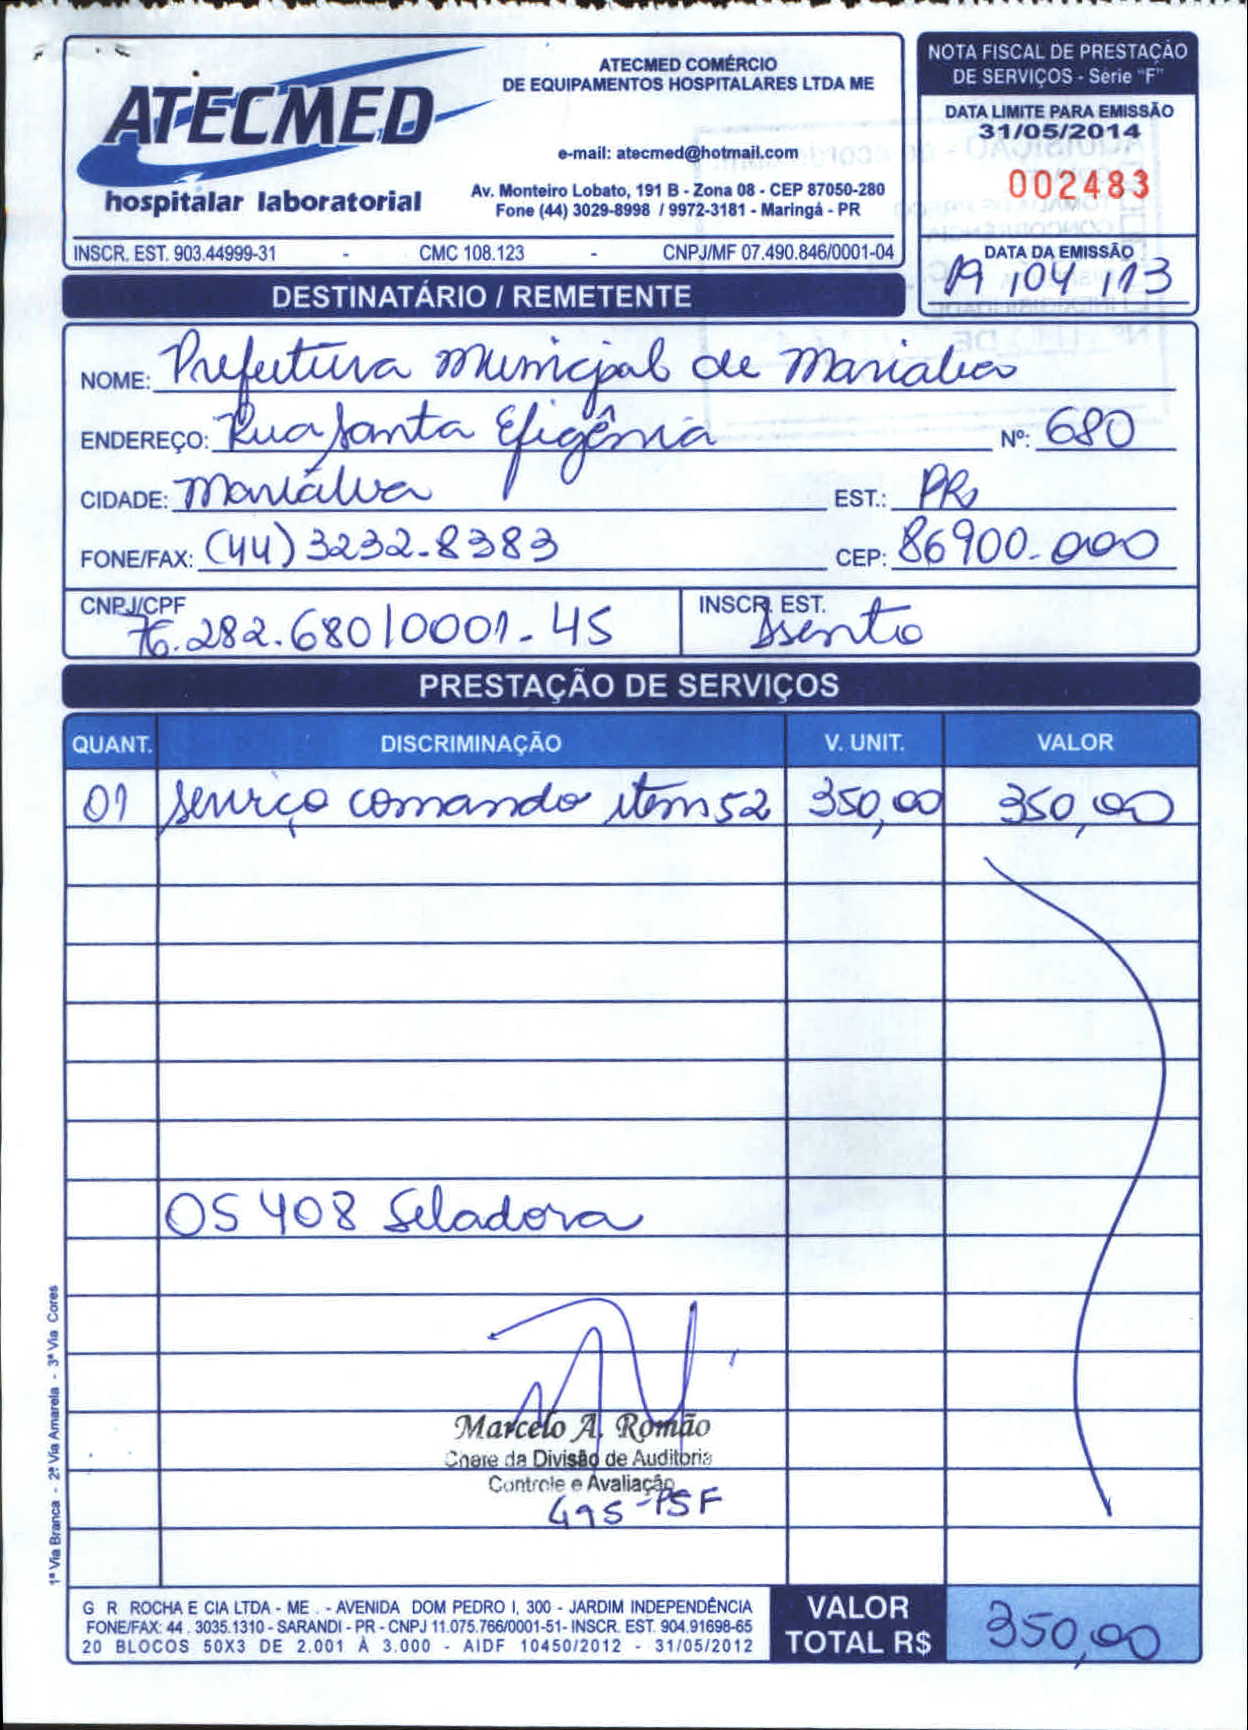 ATECMED
hospitalar laboratorial
ATECMED COMÉRCIO
DE EQUIPAMENTOS HOSPITALARES LTDA ME
e-mail: atecmed@hotmail.com
Av. Monteiro Lobato, 191 B - Zona 08 - CEP 87050-280
Fone (44) 3029-8998 / 9972-3181 - Maringá - PR
INSCR. EST. 903.44999-31 - CMC 108.123 - CNPJ/MF 07.490.846/0001-04
NOTA FISCAL DE PRESTAÇÃO
DE SERVIÇOS - Série "F"
DATA LIMITE PARA EMISSÃO
31/05/2014
002483
DATA DA EMISSÃO
19,04,13
DESTINATÁRIO / REMETENTE
NOME: Prefeitura Municipal de Marialva
ENDEREÇO: Rua Santa Efigênia Nº: 680
CIDADE: Marialva EST.: PR
FONE/FAX: (44) 3232-8383 CEP: 86900-000
CNPJ/CPF INSCR. EST.
76.282.680/0001-45 Isento
PRESTAÇÃO DE SERVIÇOS
QUANT. DISCRIMINAÇÃO V. UNIT. VALOR
01 serviço comando item 52 350,00 350,00
OS 408 Seladora
Marcelo A. Romão
Chefe da Divisão de Auditoria
Controle e Avaliação
495-PSF
1ª Via Branca - 2ª Via Amarela - 3ª Via Cores
G R ROCHA E CIA LTDA - ME . - AVENIDA DOM PEDRO I, 300 - JARDIM INDEPENDÊNCIA
FONE/FAX: 44 . 3035.1310 - SARANDI - PR - CNPJ 11.075.766/0001-51- INSCR. EST. 904.91698-65
20 BLOCOS 50X3 DE 2.001 À 3.000 - AIDF 10450/2012 - 31/05/2012
VALOR
TOTAL R$ 350,00